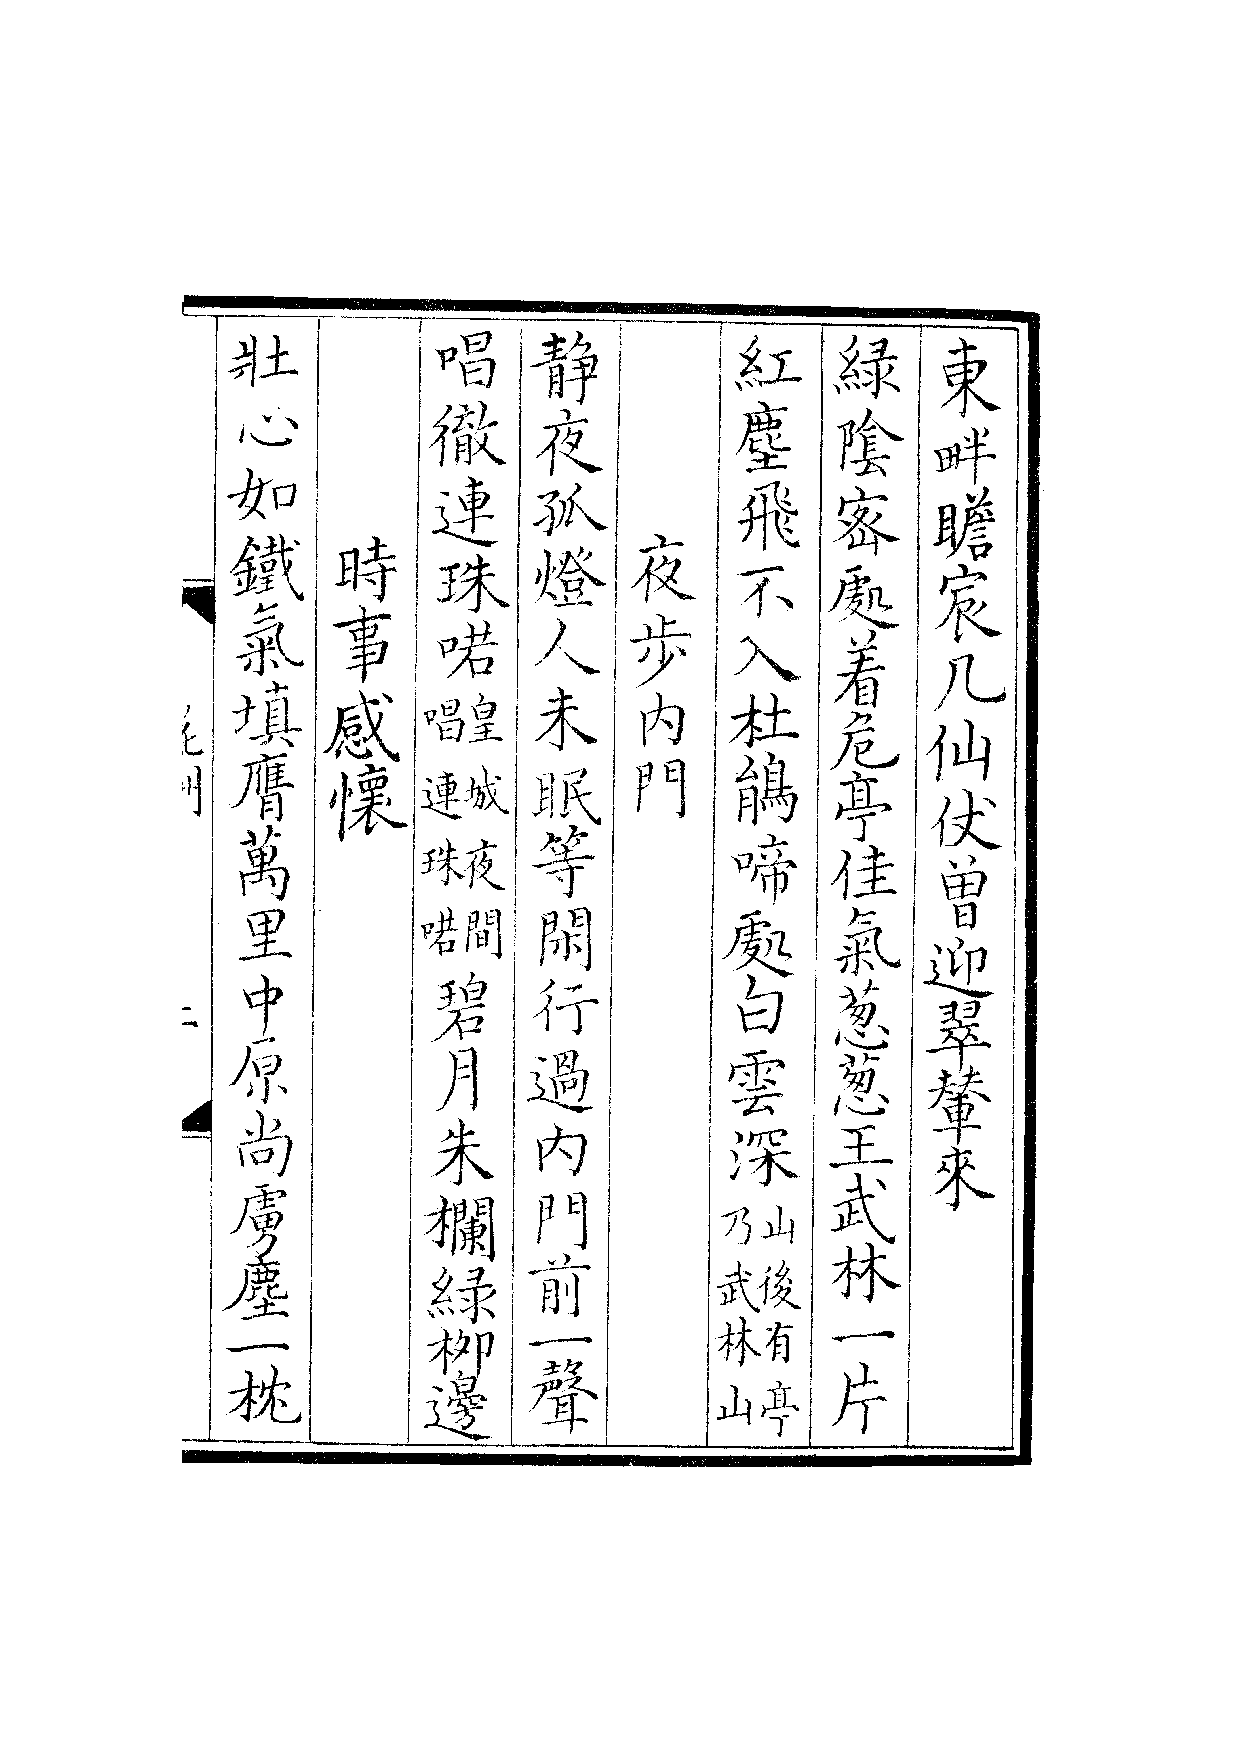 東畔瞻宸几仙仗曾迎翠輦來
緑陰宻處着危亭佳氣葱葱王武林一片
紅塵飛不入杜鵑啼處白雲深山後有亭乃武林山
夜步内門
静夜孤燈人未眠等閑行過内門前一聲
唱徹連珠喏皇城夜間唱連珠喏碧月朱欄緑栁邊
時事感懷
壯心如鐵氣填膺萬里中原尚虜塵一枕
二